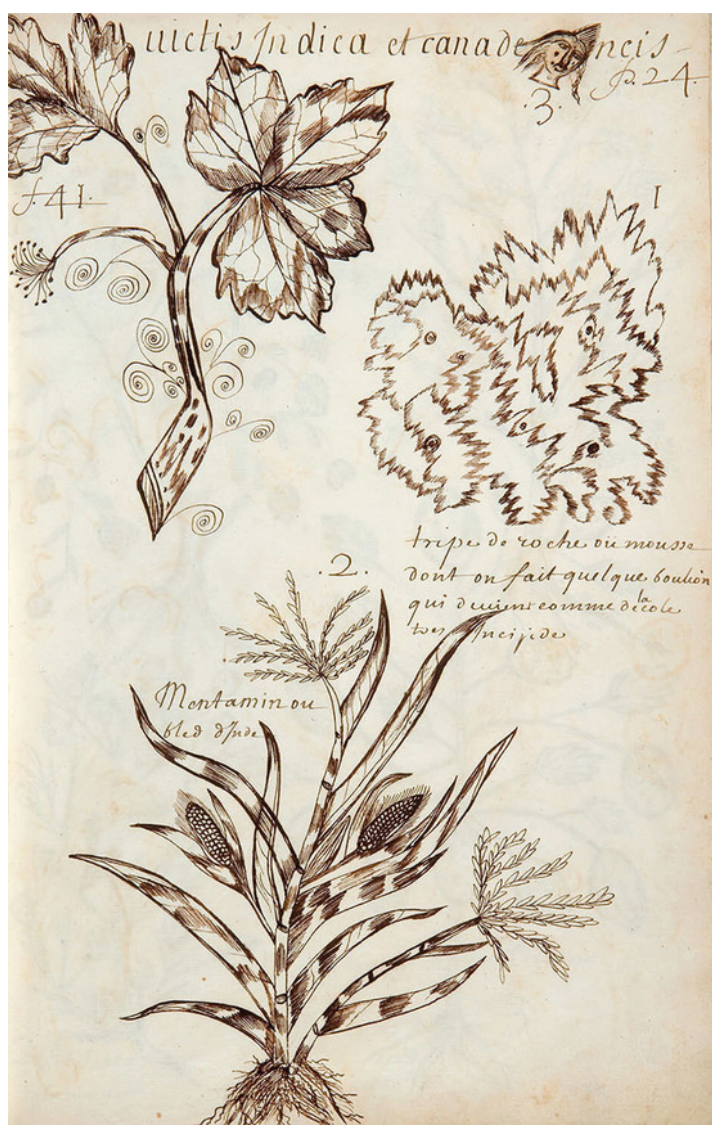 uictis Indica et canadencis
p. 24.
.3.
f. 41.
1
tripe de roche ou mousse
dont on fait quelque boulion
qui deuient comme de la cole
tres Incipide
.2.
Mentamin ou
bled d'Inde